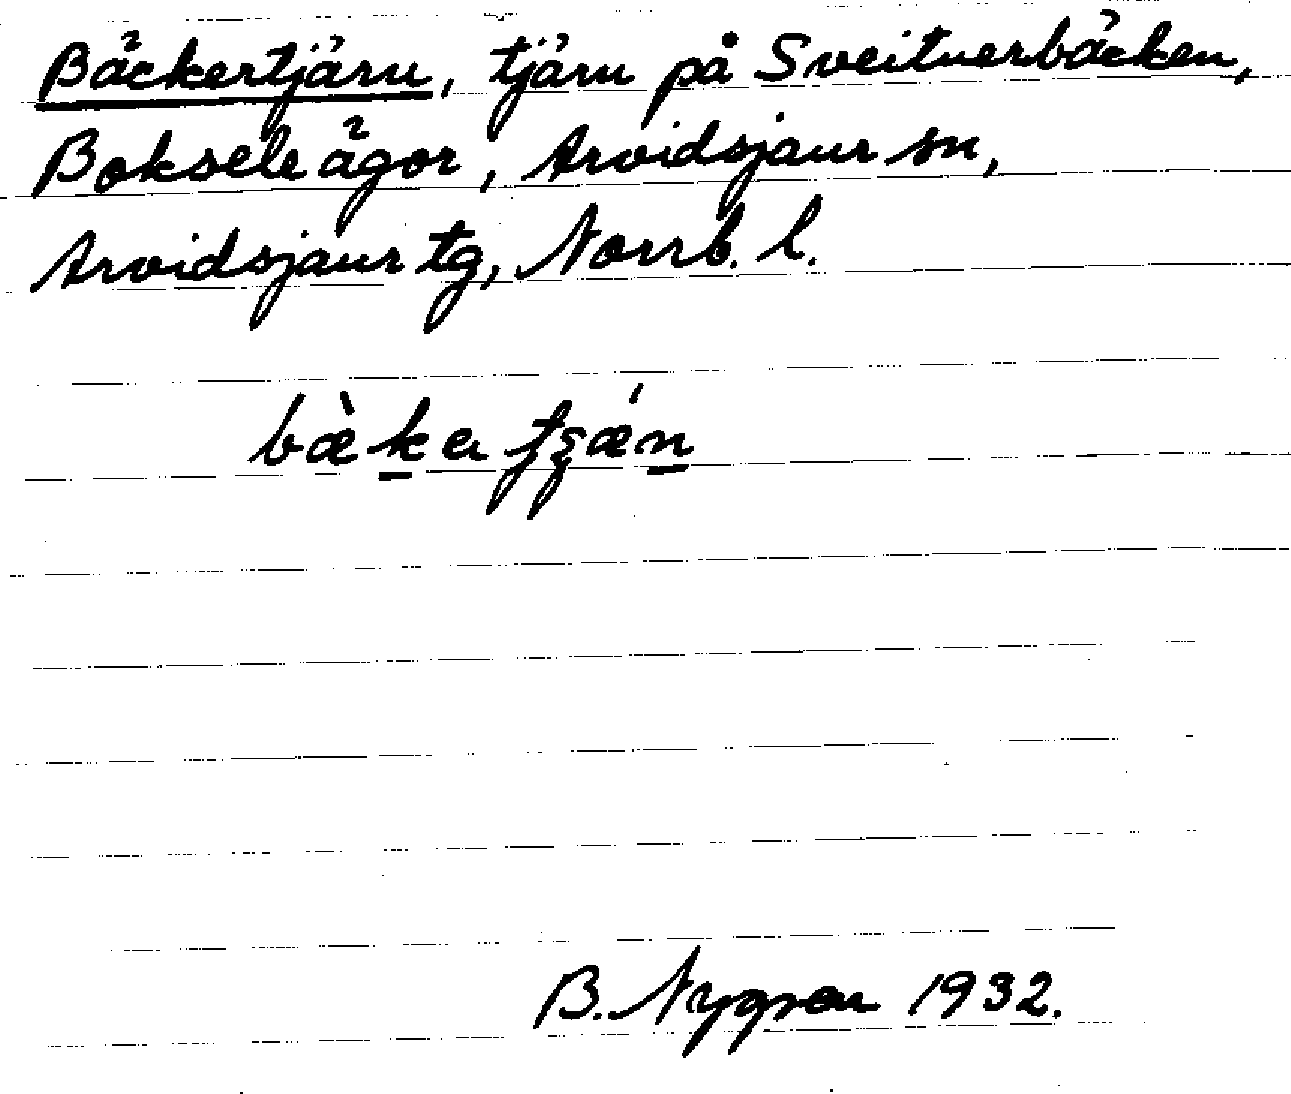 Bäckertjärn, tjärn på Sveitnerbäcken,
Boksele ägor, Arvidsjaur sn,
Arvidsjaur tg, Norrb. l.
B. Nygren 1932.